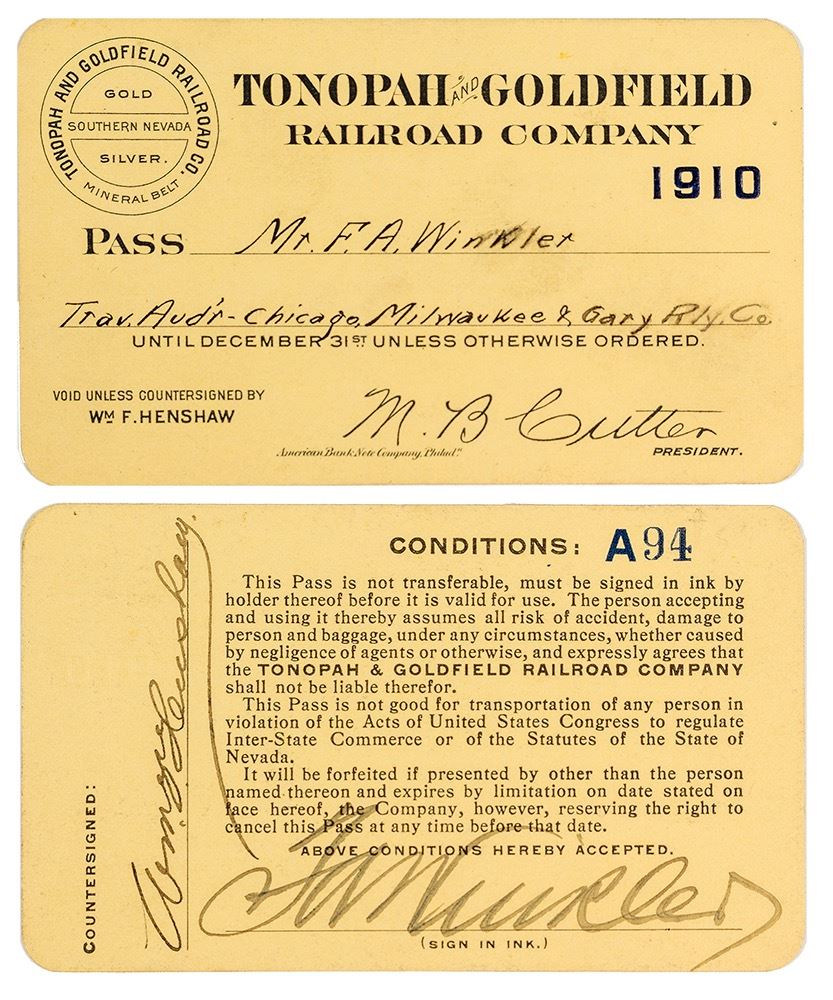 TONOPAH AND GOLDFIELD RAILROAD CO.
GOLD
SOUTHERN NEVADA
SILVER.
MINERAL BELT
TONOPAH AND GOLDFIELD
RAILROAD COMPANY
1910
PASS Mr. F. A. Winkler
Trav. Aud'r - Chicago, Milwaukee & Gary Rly. Co.
UNTIL DECEMBER 31ST UNLESS OTHERWISE ORDERED.
VOID UNLESS COUNTERSIGNED BY
WM F. HENSHAW
M. B Cutter
American Bank Note Company, Philada.
PRESIDENT.
CONDITIONS: A94
This Pass is not transferable, must be signed in ink by
holder thereof before it is valid for use. The person accepting
and using it thereby assumes all risk of accident, damage to
person and baggage, under any circumstances, whether caused
by negligence of agents or otherwise, and expressly agrees that
the TONOPAH & GOLDFIELD RAILROAD COMPANY
shall not be liable therefor.
This Pass is not good for transportation of any person in
violation of the Acts of United States Congress to regulate
Inter-State Commerce or of the Statutes of the State of
Nevada.
It will be forfeited if presented by other than the person
named thereon and expires by limitation on date stated on
face hereof, the Company, however, reserving the right to
cancel this Pass at any time before that date.
ABOVE CONDITIONS HEREBY ACCEPTED.
F A Winkler
(SIGN IN INK.)
COUNTERSIGNED:
Wm F Henshaw